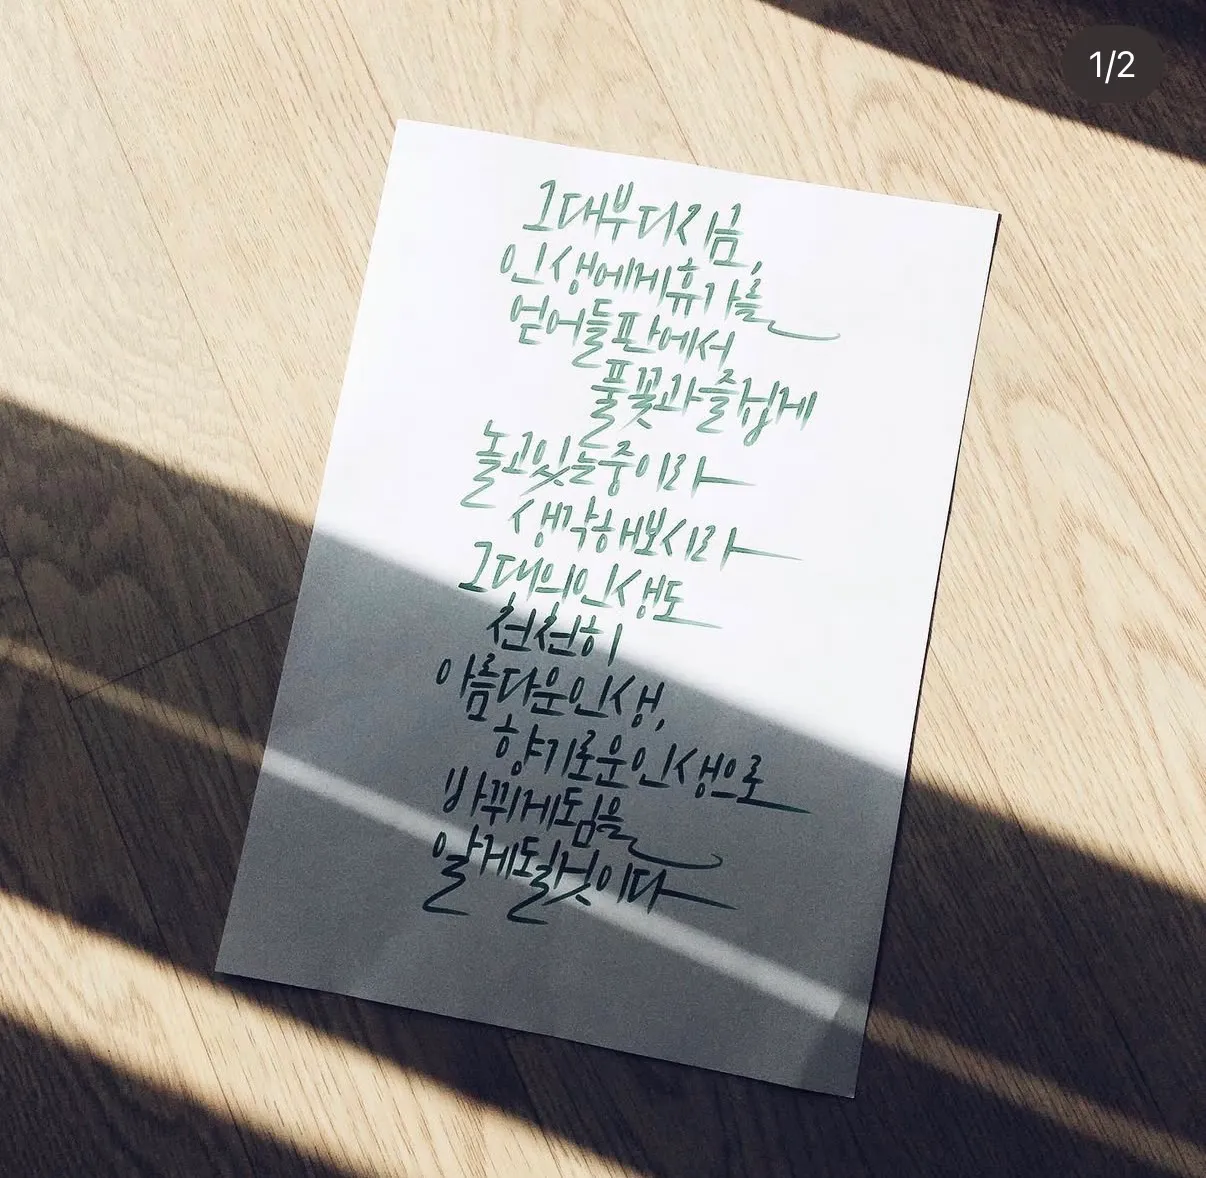 1/2
그대 부디 지금,
인생에게 휴가를
얻어 들판에서
풀꽃과 즐겁게
놀고 있는 중이라
생각해 보시라
그대의 인생도
천천히
아름다운 인생,
향기로운 인생으로
바뀌게 됨을
알게 될 것이다